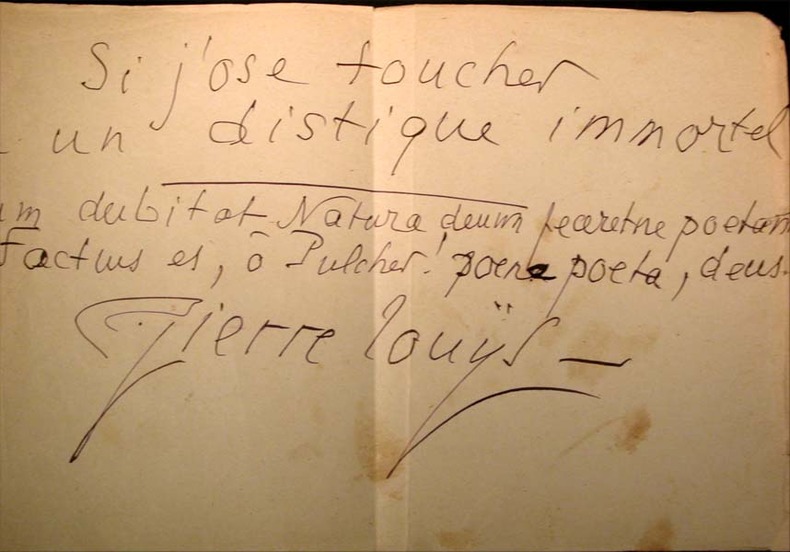 Si j'ose toucher
un distique immortel
um dubitat Natura deum faceretne poetam
factus es, ô Pulcher! poene poeta, deus.
Pierre Louÿs —